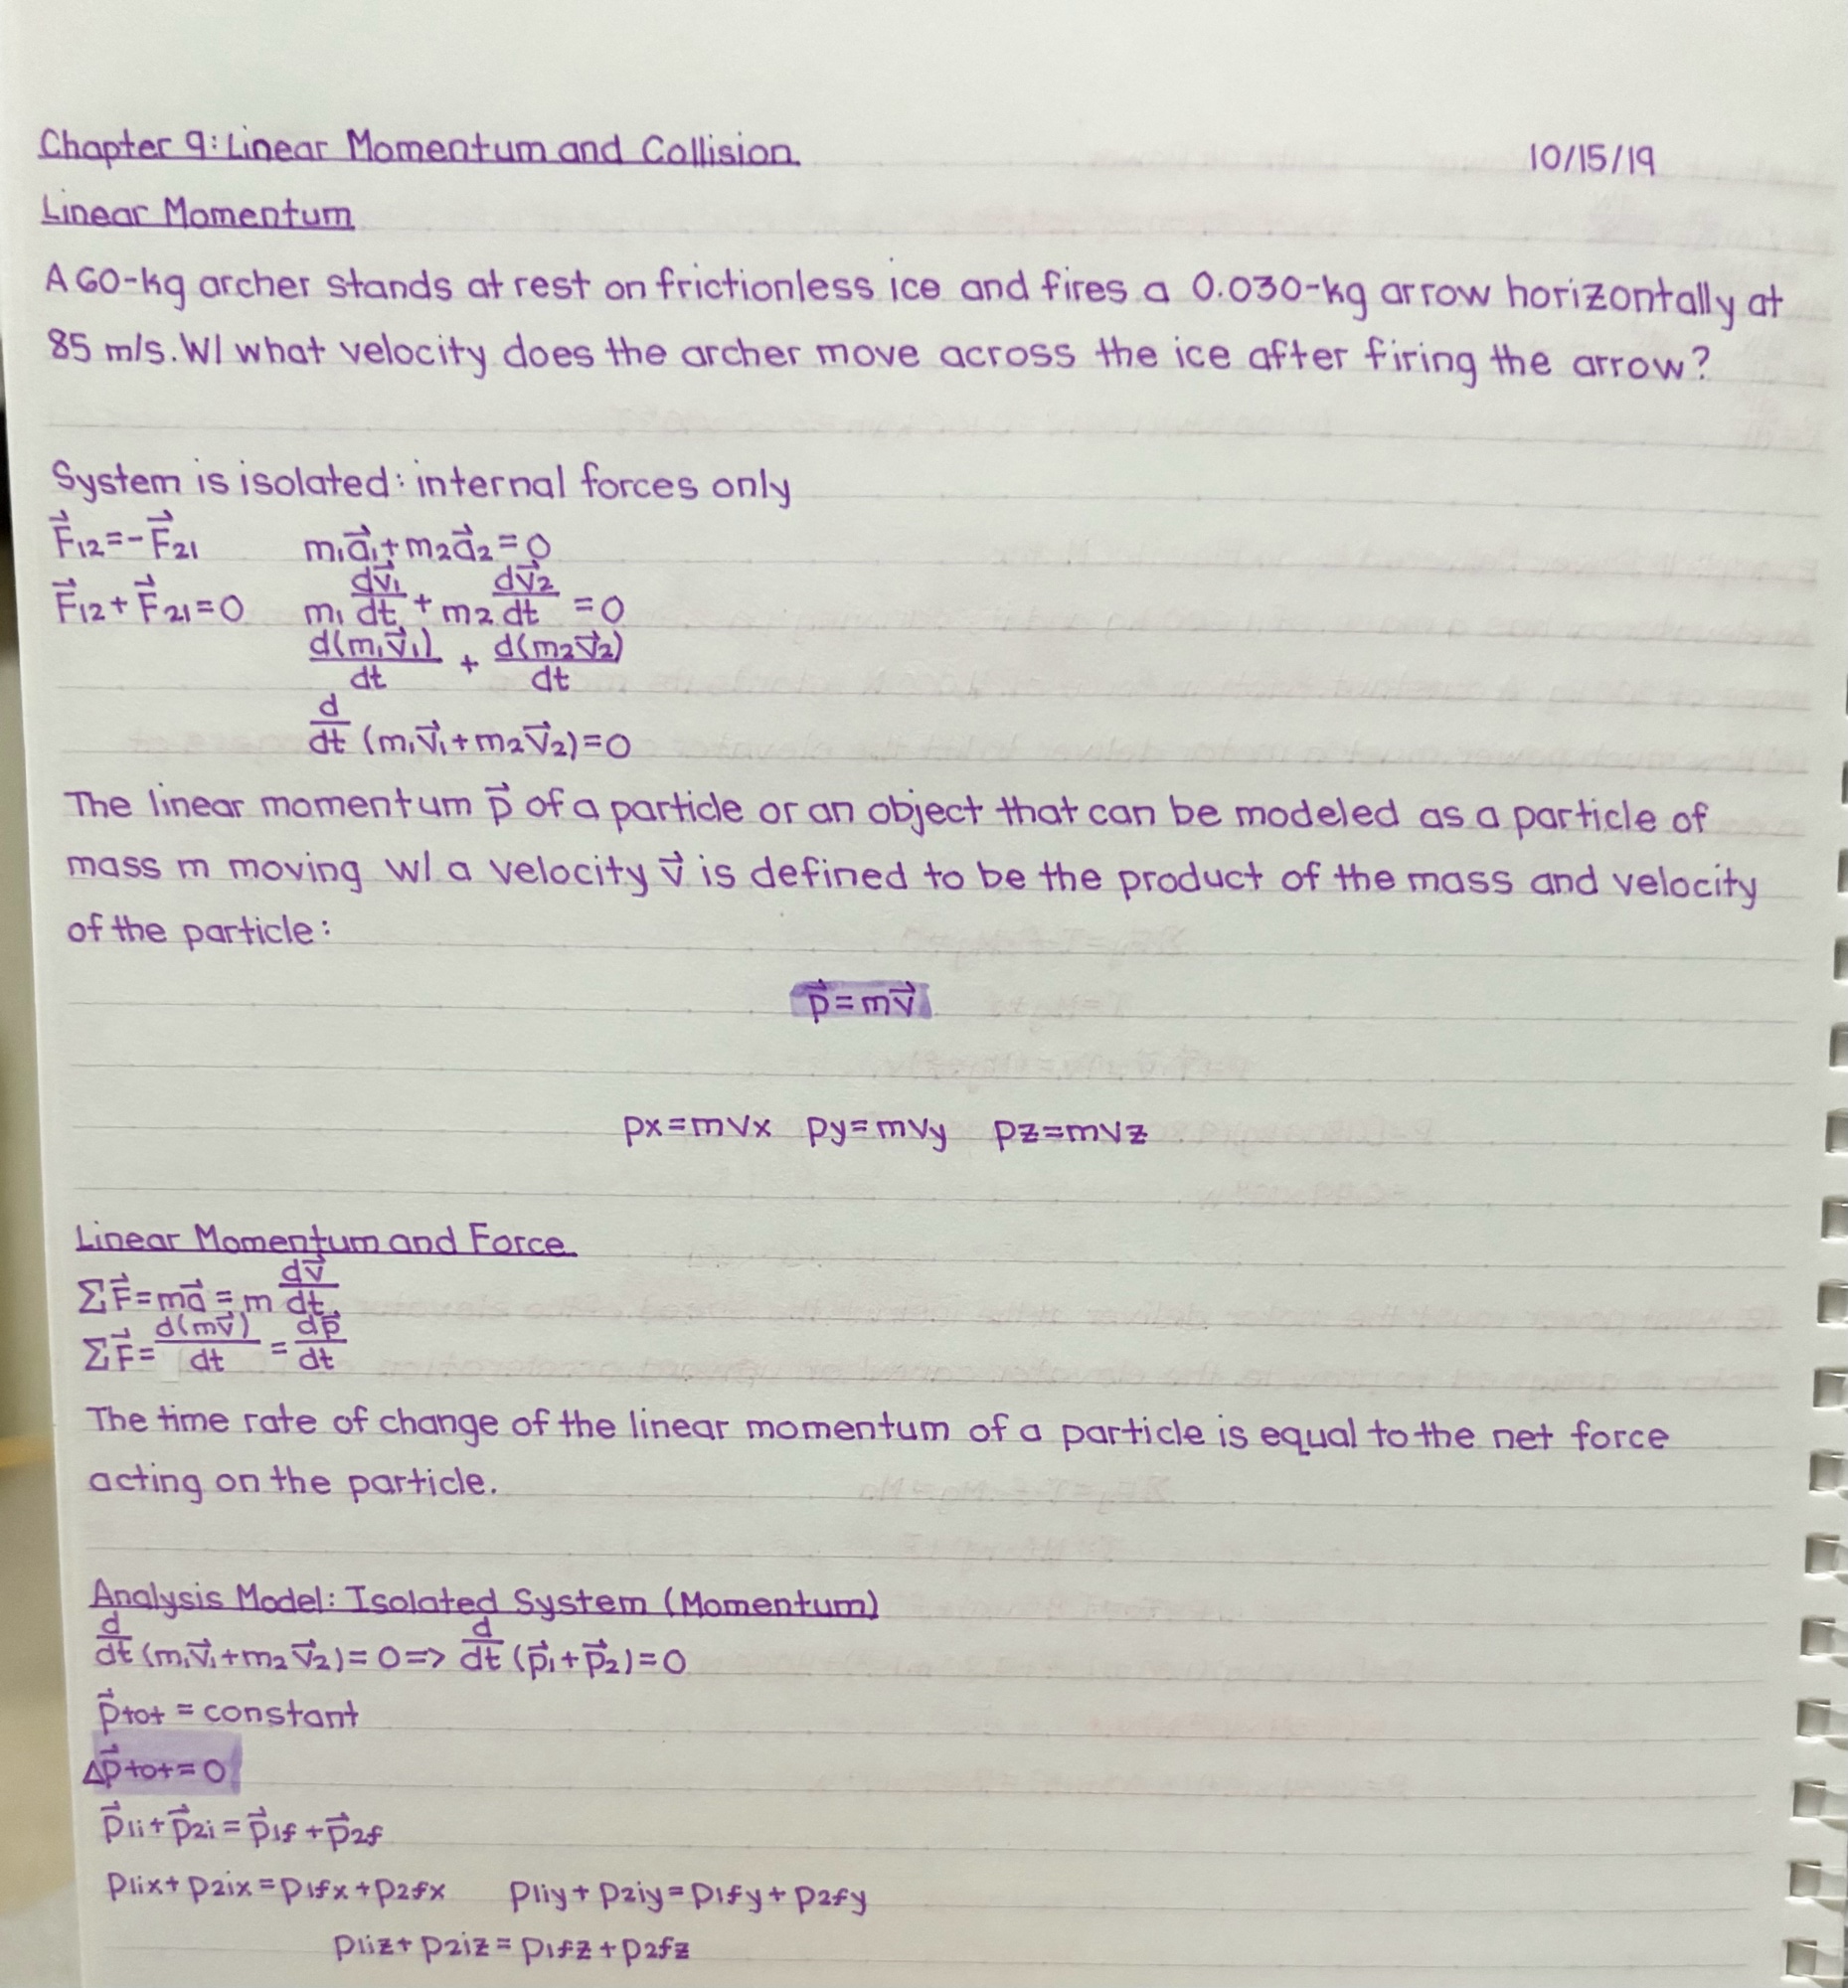 Chapter 9: Linear Momentum and Collision 10/15/19
Linear Momentum
A 60-kg archer stands at rest on frictionless ice and fires a 0.030-kg arrow horizontally at
85 m/s. W/ what velocity does the archer move across the ice after firing the arrow?
System is isolated: internal forces only
F⃗12=-F⃗21 m1a⃗1+m2a⃗2=0
F⃗12+F⃗21=0 m1 dv⃗1/dt + m2 dv⃗2/dt =0
d(m1v⃗1)/dt + d(m2v⃗2)/dt
d/dt (m1v⃗1+m2v⃗2)=0
The linear momentum p⃗ of a particle or an object that can be modeled as a particle of
mass m moving w/ a velocity v⃗ is defined to be the product of the mass and velocity
of the particle:
p⃗=mv⃗
px=mvx py=mvy pz=mvz
Linear Momentum and Force
ΣF⃗=ma⃗=m dv⃗/dt
ΣF⃗=d(mv⃗)/dt = dp⃗/dt
The time rate of change of the linear momentum of a particle is equal to the net force
acting on the particle.
Analysis Model: Isolated System (Momentum)
d/dt (m1v⃗1+m2v⃗2)=0=> d/dt (p⃗1+p⃗2)=0
p⃗tot = constant
Δp⃗tot=0
p⃗1i+p⃗2i=p⃗1f+p⃗2f
p1ix+p2ix=p1fx+p2fx p1iy+p2iy=p1fy+p2fy
p1iz+p2iz=p1fz+p2fz